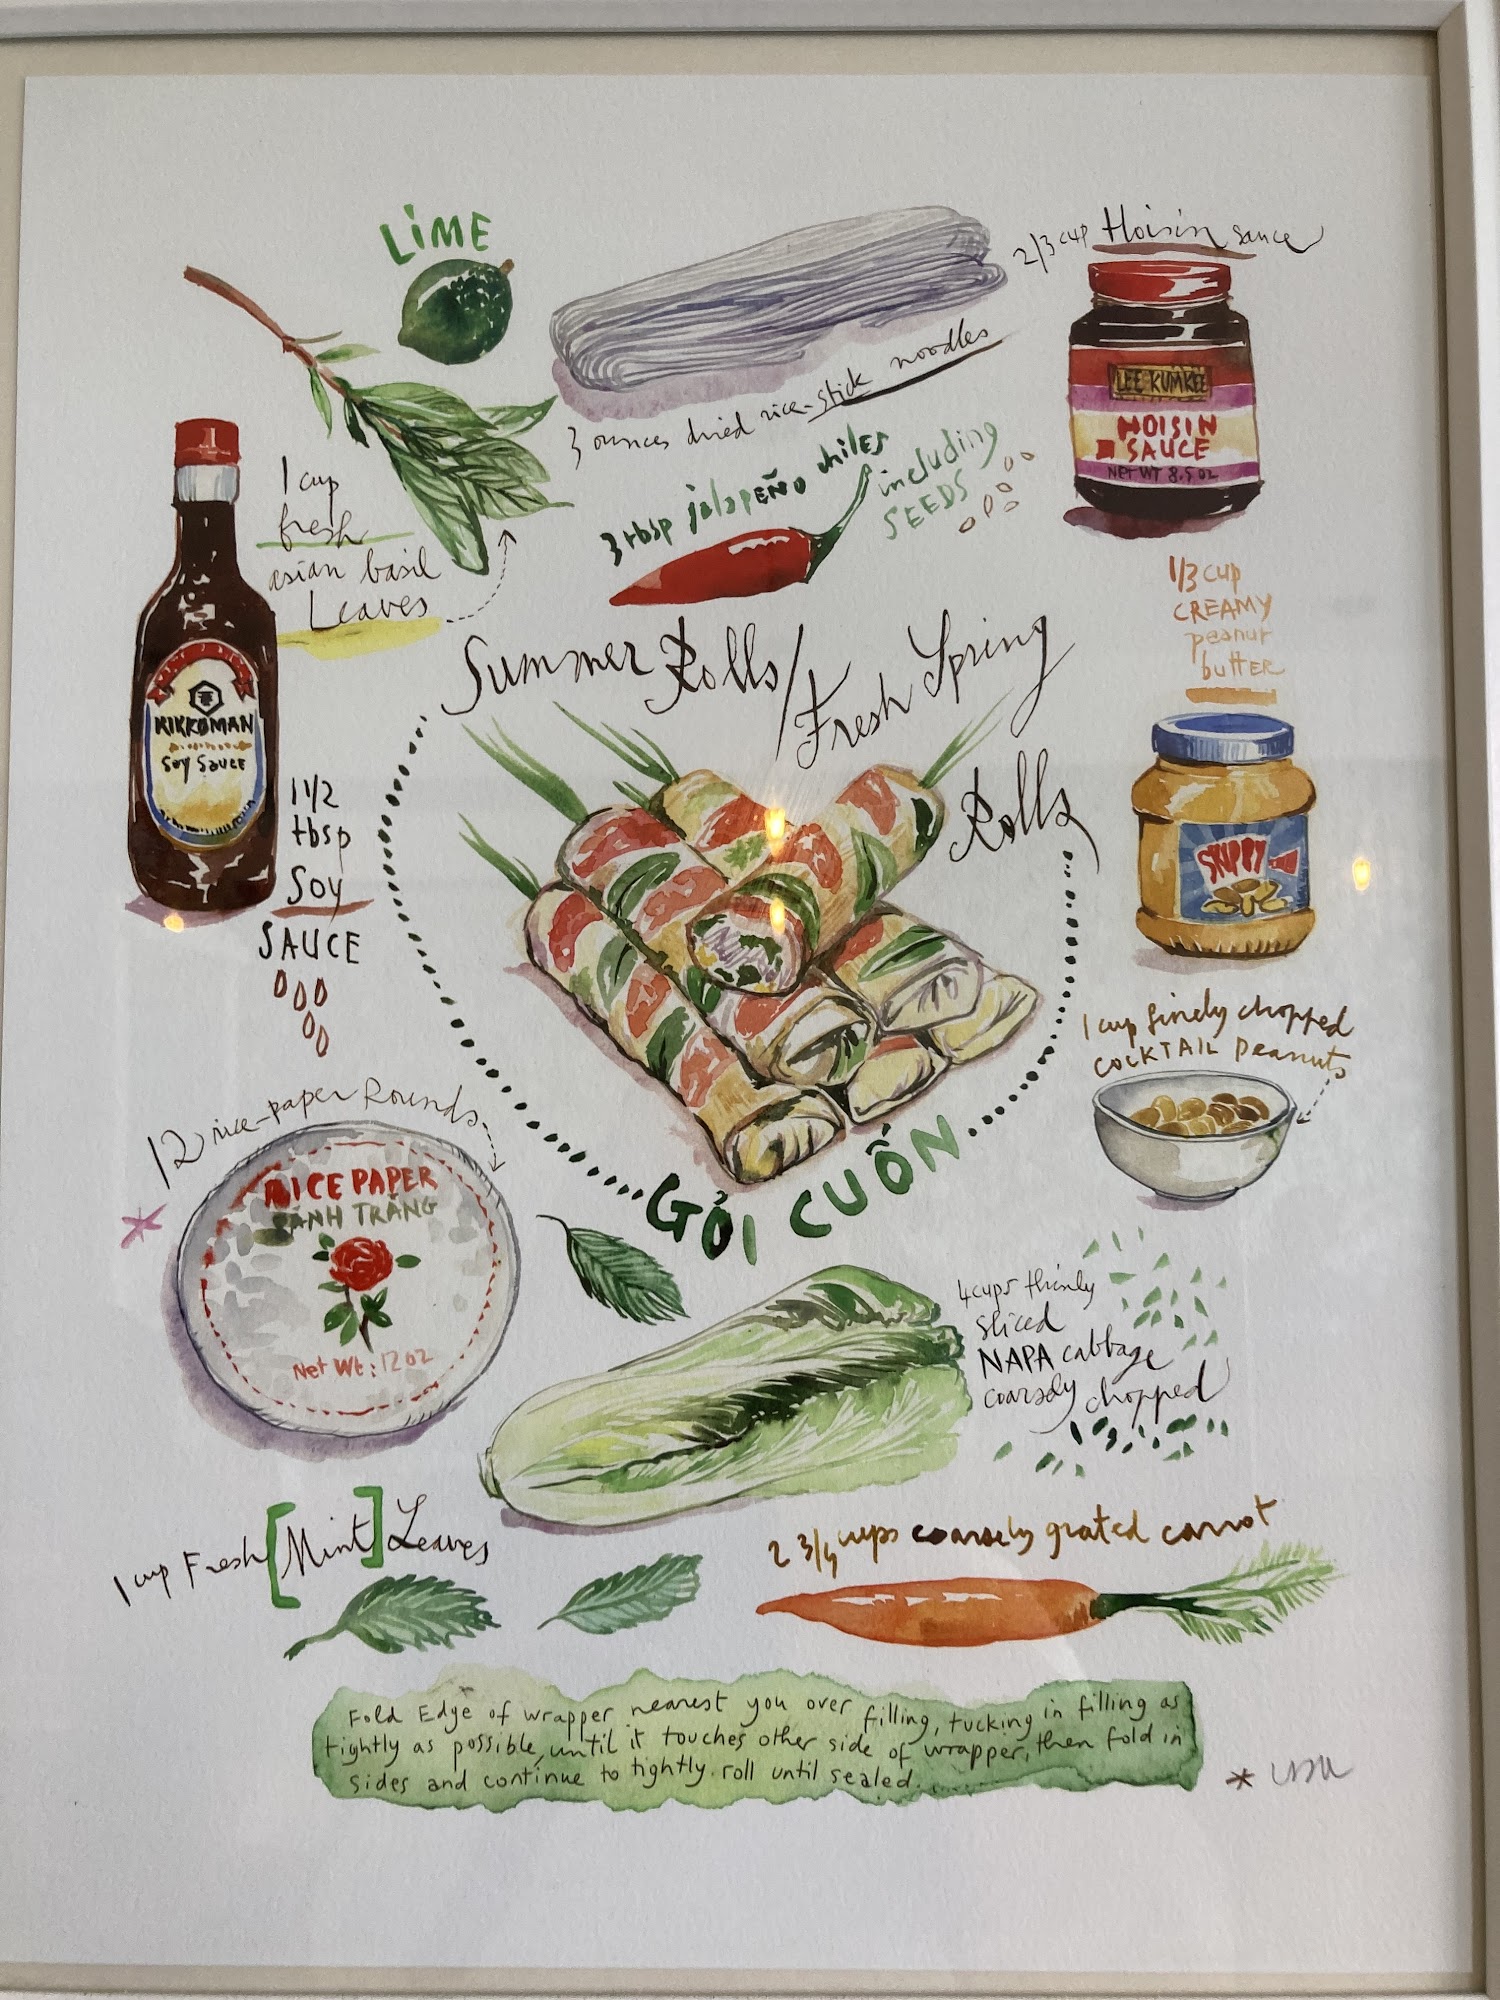 LiME
2/3 cup Hoisin sauce
3 ounces dried rice-stick noodles
LEE KUM KEE
HOISIN
SAUCE
NET WT 8.5 oz
1 cup
fresh
asian basil
Leaves
3 tbsp jalapeño chiles
including
SEEDS
1/3 cup
CREAMY
peanut
buttER
Summer Rolls/
Fresh Spring
Rolls
KIKKOMAN
Soy SaucE
1 1/2
tbsp
Soy
SAUCE
SKIPPY
1 cup finely chopped
COCKTAIL peanuts
12 rice-paper Rounds
RICE PAPER
BÁNH TRĂNG
Net Wt: 12 oz
GỎI CUỐN
4 cups thinly
sliced
NAPA cabbage
coarsely chopped
1 cup Fresh [Mint] Leaves
2 3/4 cups coarsely grated carrot
Fold Edge of wrapper nearest you over filling, tucking in filling as
tightly as possible, until it touches other side of wrapper, then fold in
sides and continue to tightly roll until sealed.